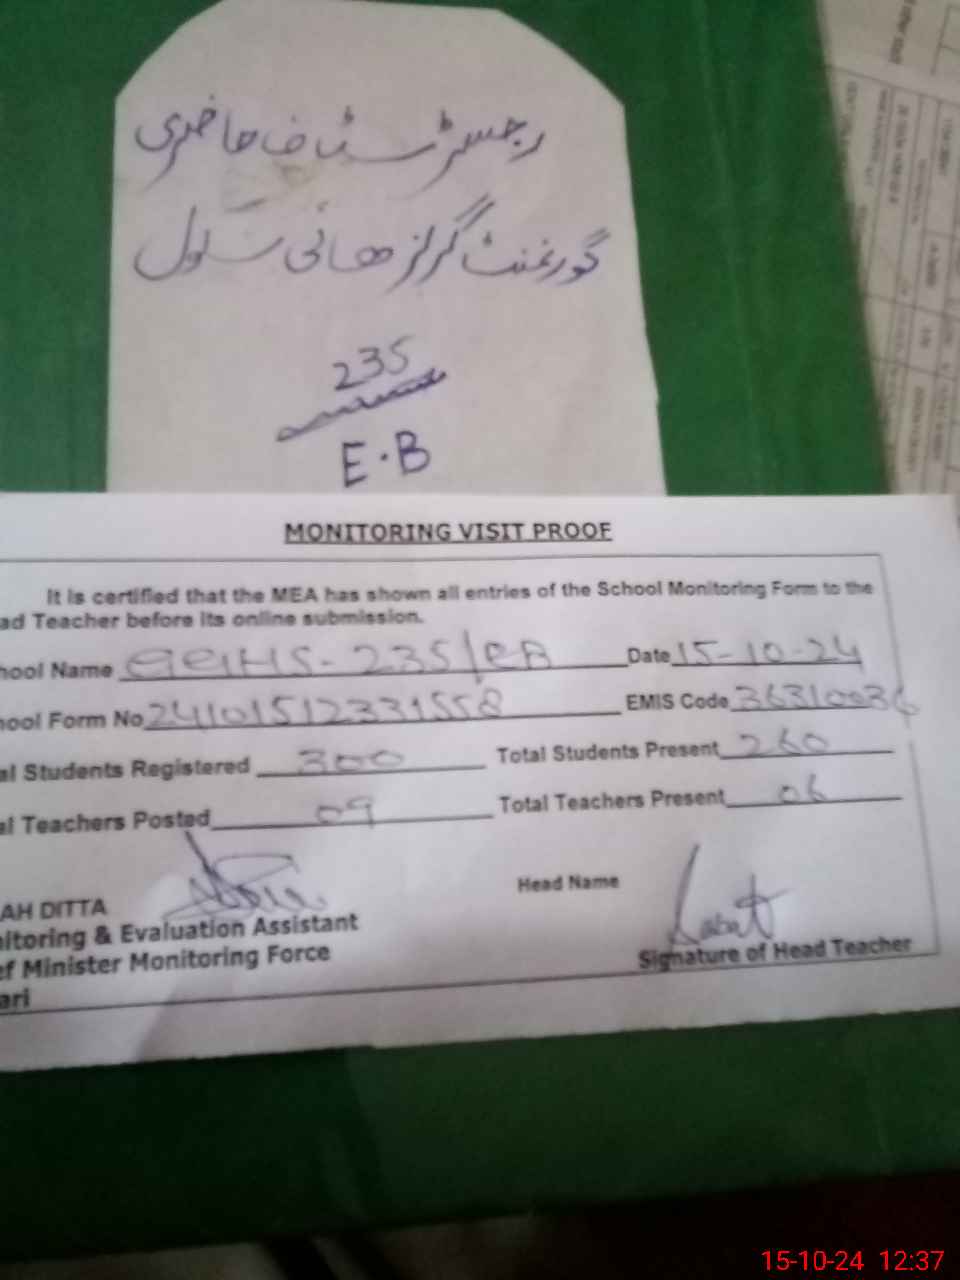 رجسٹر سٹاف حاضری
گورنمنٹ گرلز ھائی سکول
235
E.B
MONITORING VISIT PROOF
It is certified that the MEA has shown all entries of the School Monitoring Form to the
ad Teacher before its online submission.
hool Name GGHS-235/EB Date 15-10-24
hool Form No 24101512331558 EMIS Code 36310036
al Students Registered 300 Total Students Present 260
al Teachers Posted 09 Total Teachers Present 06
AH DITTA Head Name
nitoring & Evaluation Assistant
ef Minister Monitoring Force Signature of Head Teacher
ari
15-10-24 12:37